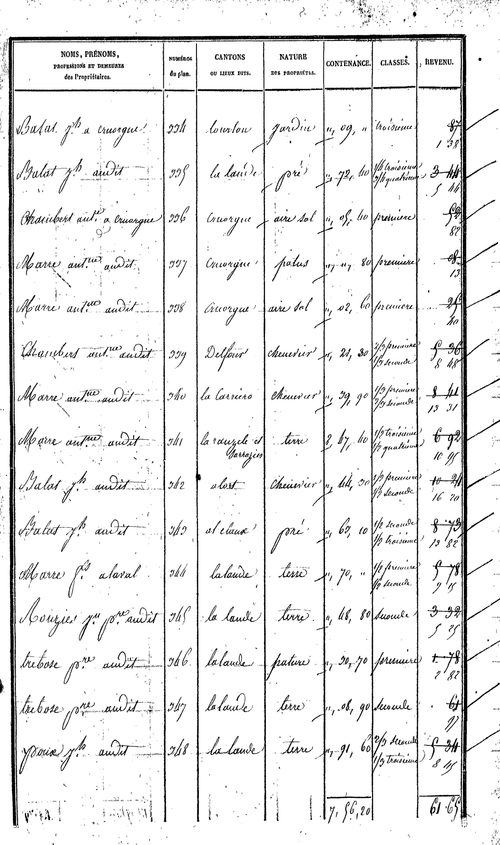 NOMS, PRÉNOMS, PROFESSIONS ET DEMEURES des Propriétaires. NUMÉROS du plan. CANTONS OU LIEUX DITS. NATURE DES PROPRIÉTÉS. CONTENANCE. CLASSES. REVENU.
Balat jh a cruorgue 334 tourton jardin ,, 09, ,, troisieme 87
1 38
Balat jh audit 335 la lande pré ,, 72, 40 1/2 troisieme 1/2 quatrième 3 44
5 46
Chambert ant.e a cruorgue 336 cruorgue aire sol ,, 05, 40 premiere 52
82
Marre ant.ne audit 337 cruorgue patus ,, ,, 80 premiere 08
13
Marre ant.ne audit 338 cruorgue aire sol ,, 02, 60 premiere 25
40
Chambert ant.ne audit 339 Delfour chenevier ,, 24, 30 2/3 premiere 1/3 seconde 5 36
8 48
Marre ant.ne audit 340 la Carriero chenevier ,, 39, 90 1/3 premiere 2/3 seconde 8 41
13 31
Marre ant.ne audit 341 terre 2, 47, 40 1/2 troisieme 1/2 quatrième 6 92
10 95
Balat jh audit 342 alort chenevier ,, 44, 30 1/2 premiere 1/2 seconde 10 24
16 20
Balat jh audit 343 al claux pré ,, 63, 10 1/2 seconde 1/2 troisieme 8 73
13 82
Marre fs alaval 344 lalande terre ,, 70, ,, 1/2 premiere 1/2 seconde 5 78
9 15
Rouzies pre audit 345 la lande terre ,, 48, 80 seconde 3 32
5 25
trebosc pre audit 346 lalande pature ,, 30, 70 premiere 1 78
2 82
trebosc pre audit 347 lalande terre ,, 08, 90 seconde 61
97
jh audit 348 la lande terre ,, 91, 60 2/3 seconde 1/3 troisieme 5 34
8 45
7, 56, 20 61 65